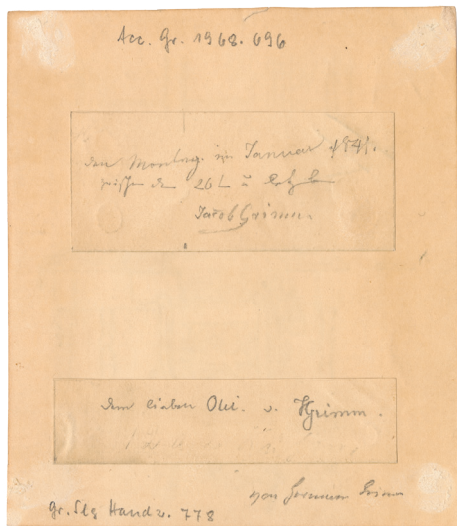 Acc. Gr. 1968. 696
den Montag im Januar 1841.
zwischen 26t u
Jacob Grimm.
dem lieben Ohi. v. HGrimm.
von Herman Grimm
gr. Slg Handz. 778